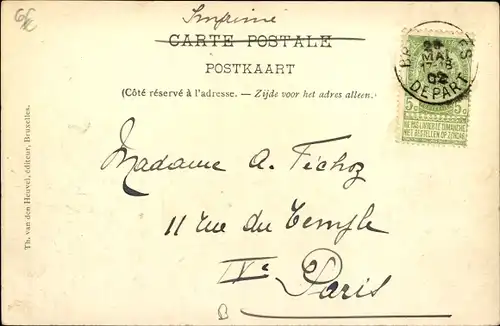 Imprimé
CARTE POSTALE
POSTKAART
(Côté réservé à l'adresse. — Zijde voor het adres alleen.)
BRUXELLES
MAI
02
DEPART
5c 5c
NE PAS LIVRER LE DIMANCHE
NIET BESTELLEN OP ZONDAG
Madame A. Féchoz
11 Rue du Temple
IVe Paris
Th. van den Heuvel, éditeur, Bruxelles.